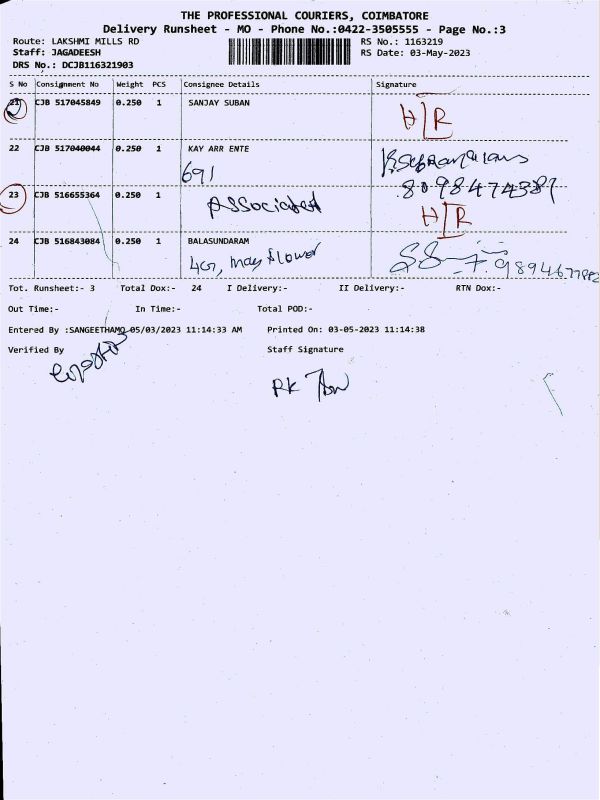 THE PROFESSIONAL COURIERS, COIMBATORE
Delivery Runsheet - MO - Phone No.:0422-3505555 - Page No.:3
Route: LAKSHMI MILLS RD RS No.: 1163219
Staff: JAGADEESH RS Date: 03-May-2023
DRS No.: DCJB116321903
S No Consignment No Weight PCS Consignee Details Signature
21 CJB 517045849 0.250 1 SANJAY SUBAN
H/R
22 CJB 517040044 0.250 1 KAY ARR ENTE
691
8098474387
23 CJB 516655364 0.250 1
Associated H/R
24 CJB 516843084 0.250 1 BALASUNDARAM
407, may flower
Tot. Runsheet:- 3 Total Dox:- 24 I Delivery:- II Delivery:- RTN Dox:-
Out Time:- In Time:- Total POD:-
Entered By :SANGEETHAMO 05/03/2023 11:14:33 AM Printed On: 03-05-2023 11:14:38
Verified By Staff Signature
RK